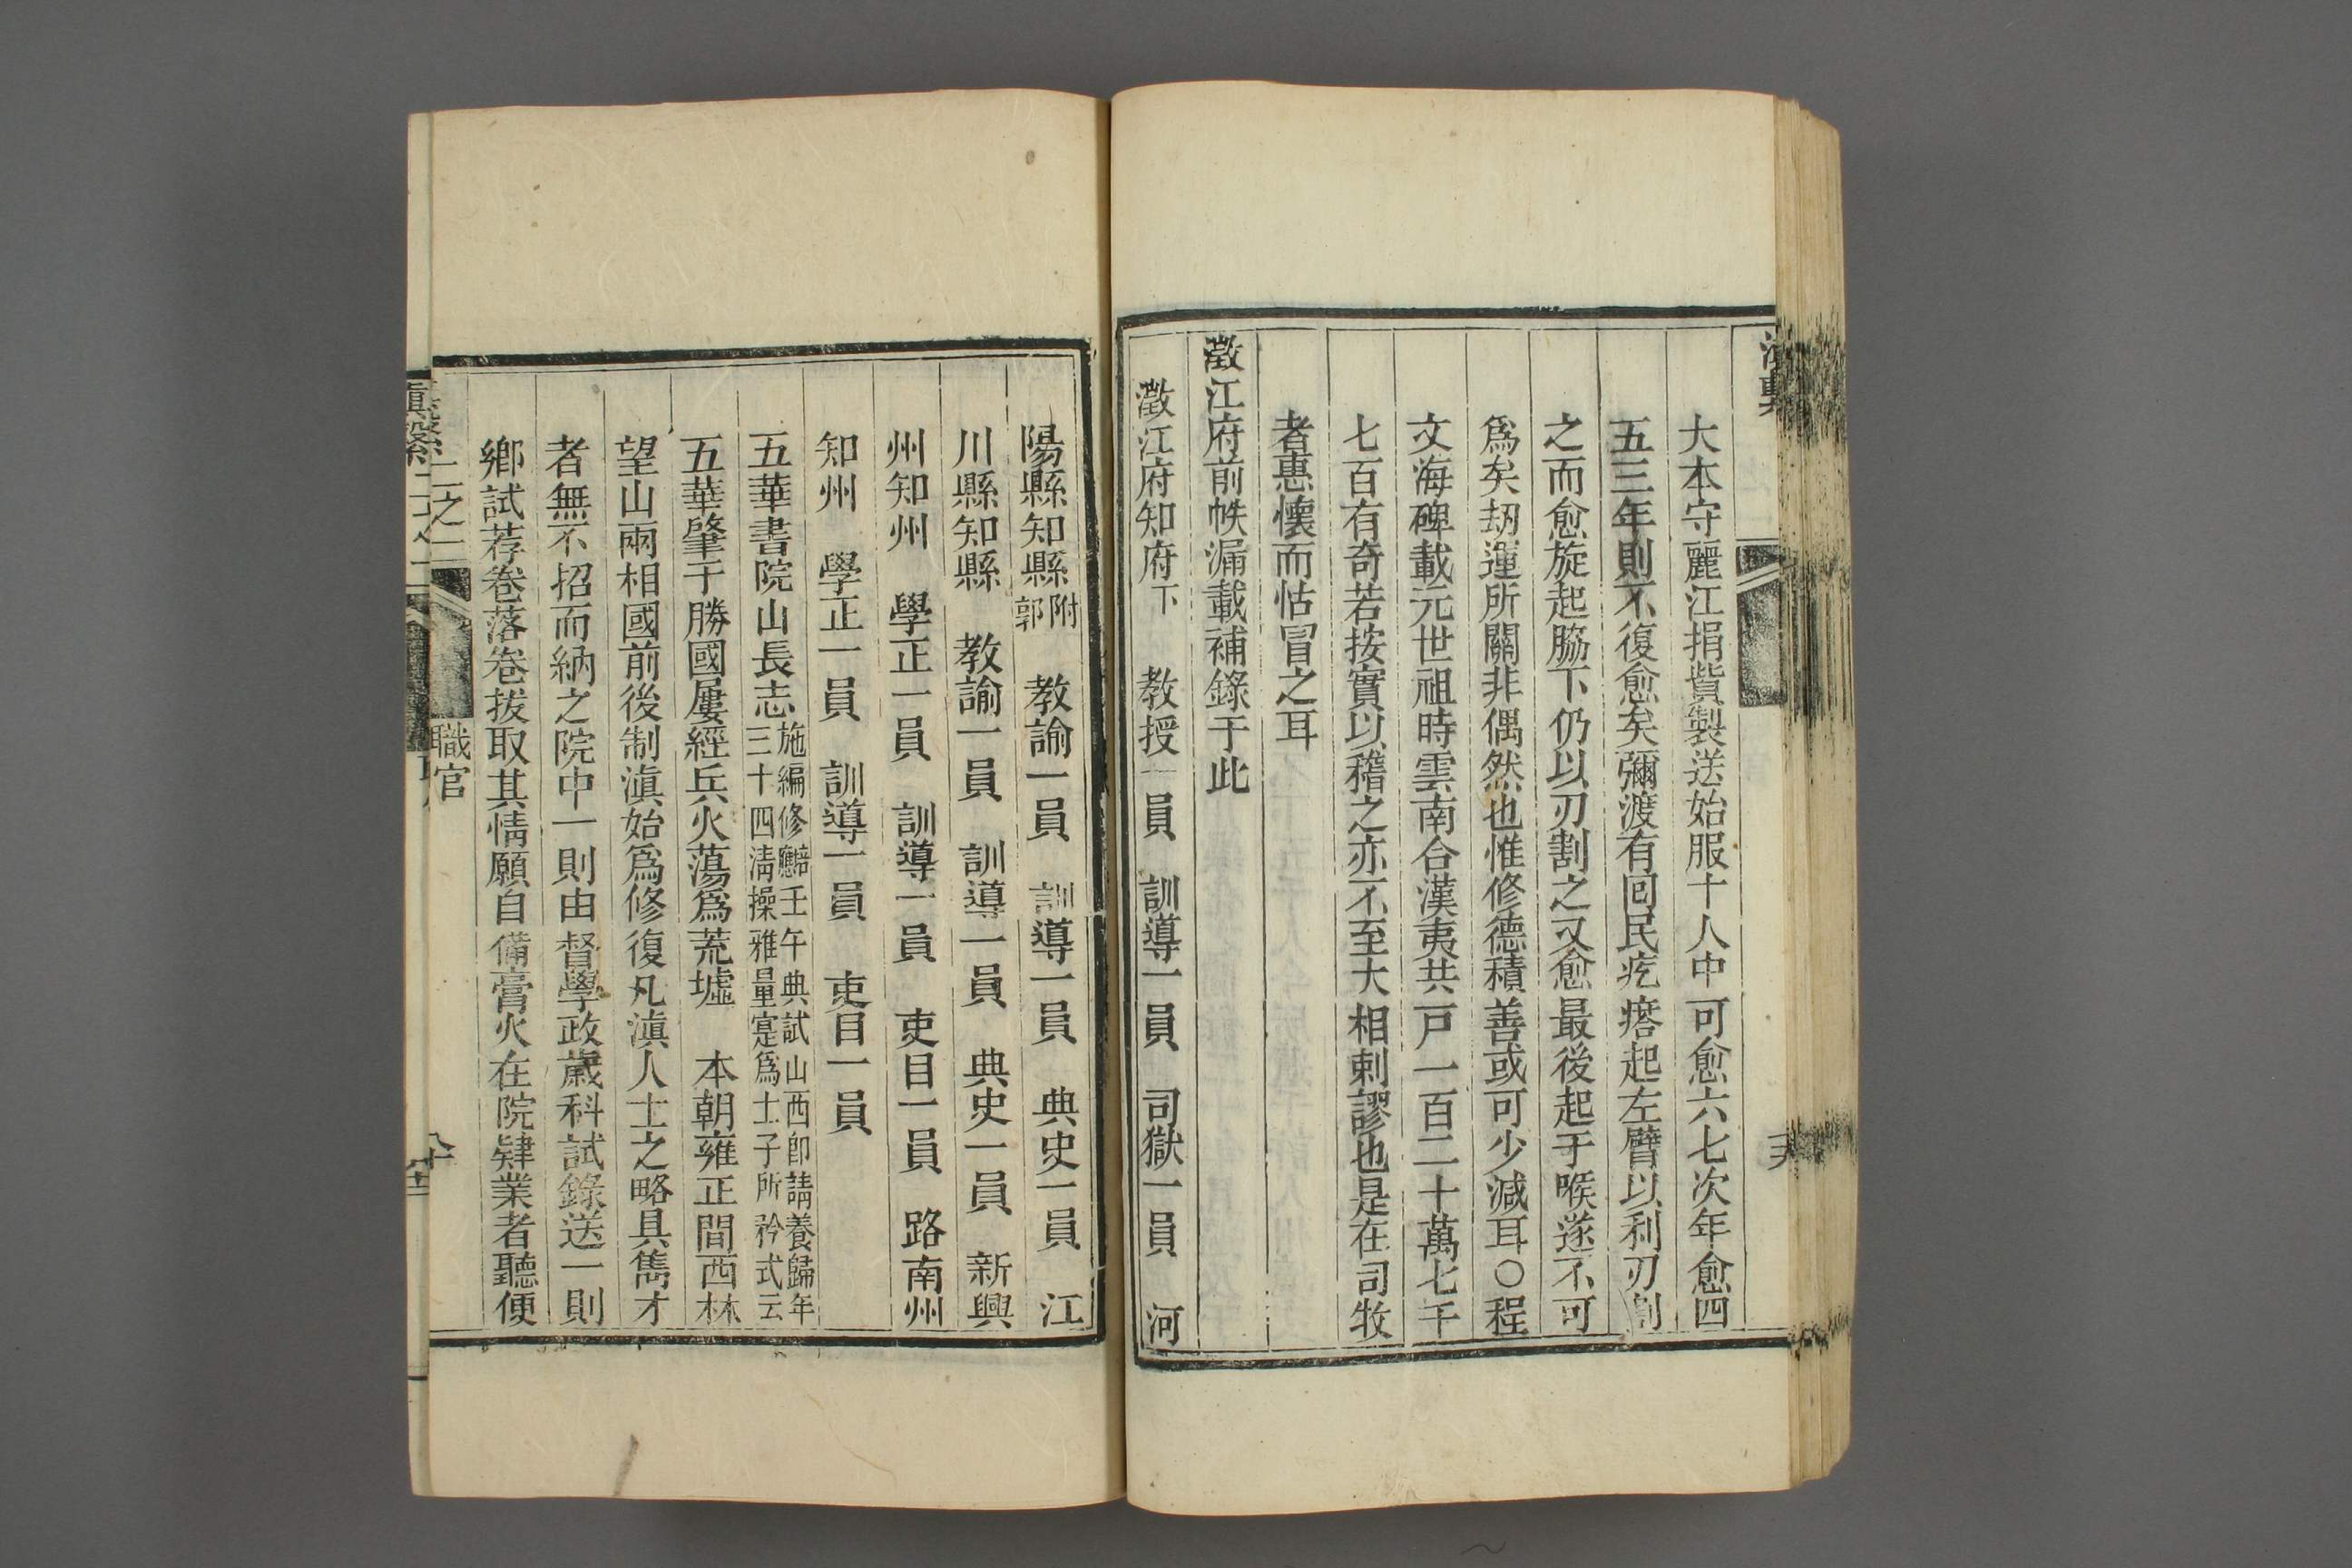 大本守麗江捐貲製送始服十人中可愈六七次年愈四
五三年則不復愈矣彌渡有回民疙瘩起左臂以利刃割
之而愈旋起脇下仍以刃割之又愈最後起于喉遂不可
爲矣刼運所關非偶然也惟修德積善或可少減耳○程
文海碑載元世祖時雲南合漢夷共戸一百二十萬七千
七百有奇若按實以稽之亦不至大相剌謬也是在司牧
者惠懷而怙冒之耳
澂江府前帙漏載補錄于此
澂江府知府下 教授一員 訓導一員 司獄一員 河
陽縣知縣附郭 教諭一員 訓導一員 典史一員 江
川縣知縣 教諭一員 訓導一員 典史一員 新興
州知州 學正一員 訓導一員 吏目一員 路南州
知州 學正一員 訓導一員 吏目一員
五華書院山長志施編修壬午典試山西卽請養歸年三十四淸操雅量寔爲士子所矜式云
五華肇于勝國屢經兵火蕩爲荒墟 本朝雍正間西林
望山兩相國前後制滇始爲修復凡滇人士之略具雋才
者無不招而納之院中一則由督學政歲科試錄送一則
鄉試荐卷落卷拔取其情願自備膏火在院肄業者聽便
二之二 職官